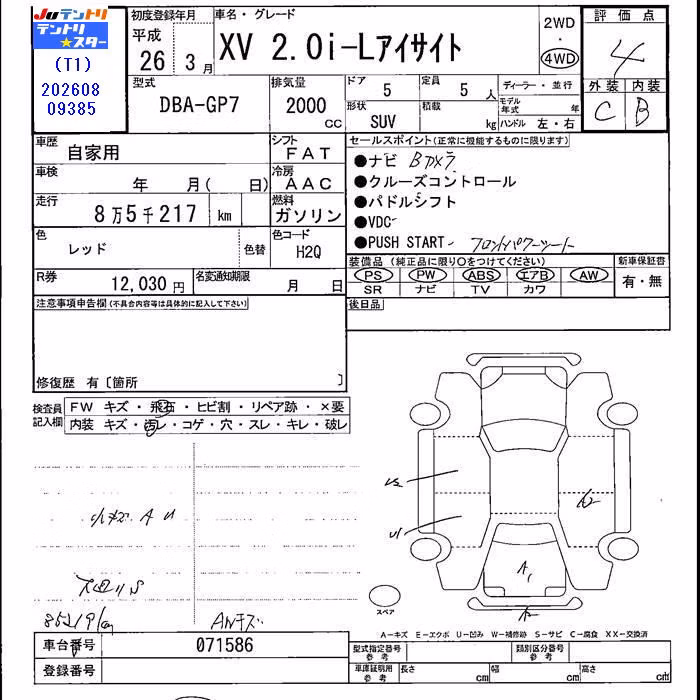 JUテントリ
テントリ★スター
(T1)
202608
09385
初度登録年月
平成
26 3月
車名・グレード
XV 2.0i-Lアイサイト
2WD
・
4WD
評価点
4
外装 内装
C B
型式
DBA-GP7
排気量
2000
cc
ドア
5
定員
5人
形状
SUV
積載
kg
ディーラー・並行
モデル年式 年
ハンドル 左・右
車歴
自家用
シフト
FAT
車検
年 月( 日)
冷房
AAC
走行
8万5千217 km
燃料
ガソリン
色
レッド
色替
色コード
H2Q
R券
12,030円
名変通知期限
月 日
セールスポイント(正常に機能するものに限ります)
●ナビ Bカメラ
●クルーズコントロール
●パドルシフト
●VDC
●PUSH START フロントパワーシート
装備品(純正品に限り○をつけてください)
PS PW ABS エアB AW
SR ナビ TV カワ
新車保証書
有・無
後日品
注意事項申告欄(不具合内容等は具体的に記入して下さい)
修復歴 有〔箇所 〕
検査員記入欄
FW キズ・飛石・ヒビ割・リペア跡・×要
内装 キズ・汚レ・コゲ・穴・スレ・キレ・破レ
小キズ A U
85219km
A1
スペア
A-キズ E-エクボ U-凹み W-補修跡 S-サビ C-腐食 XX-交換済
車台番号
071586
登録番号
型式指定番号
参考
類別区分番号
参考
車庫証明用
参考
長さ cm
幅 cm
高さ cm